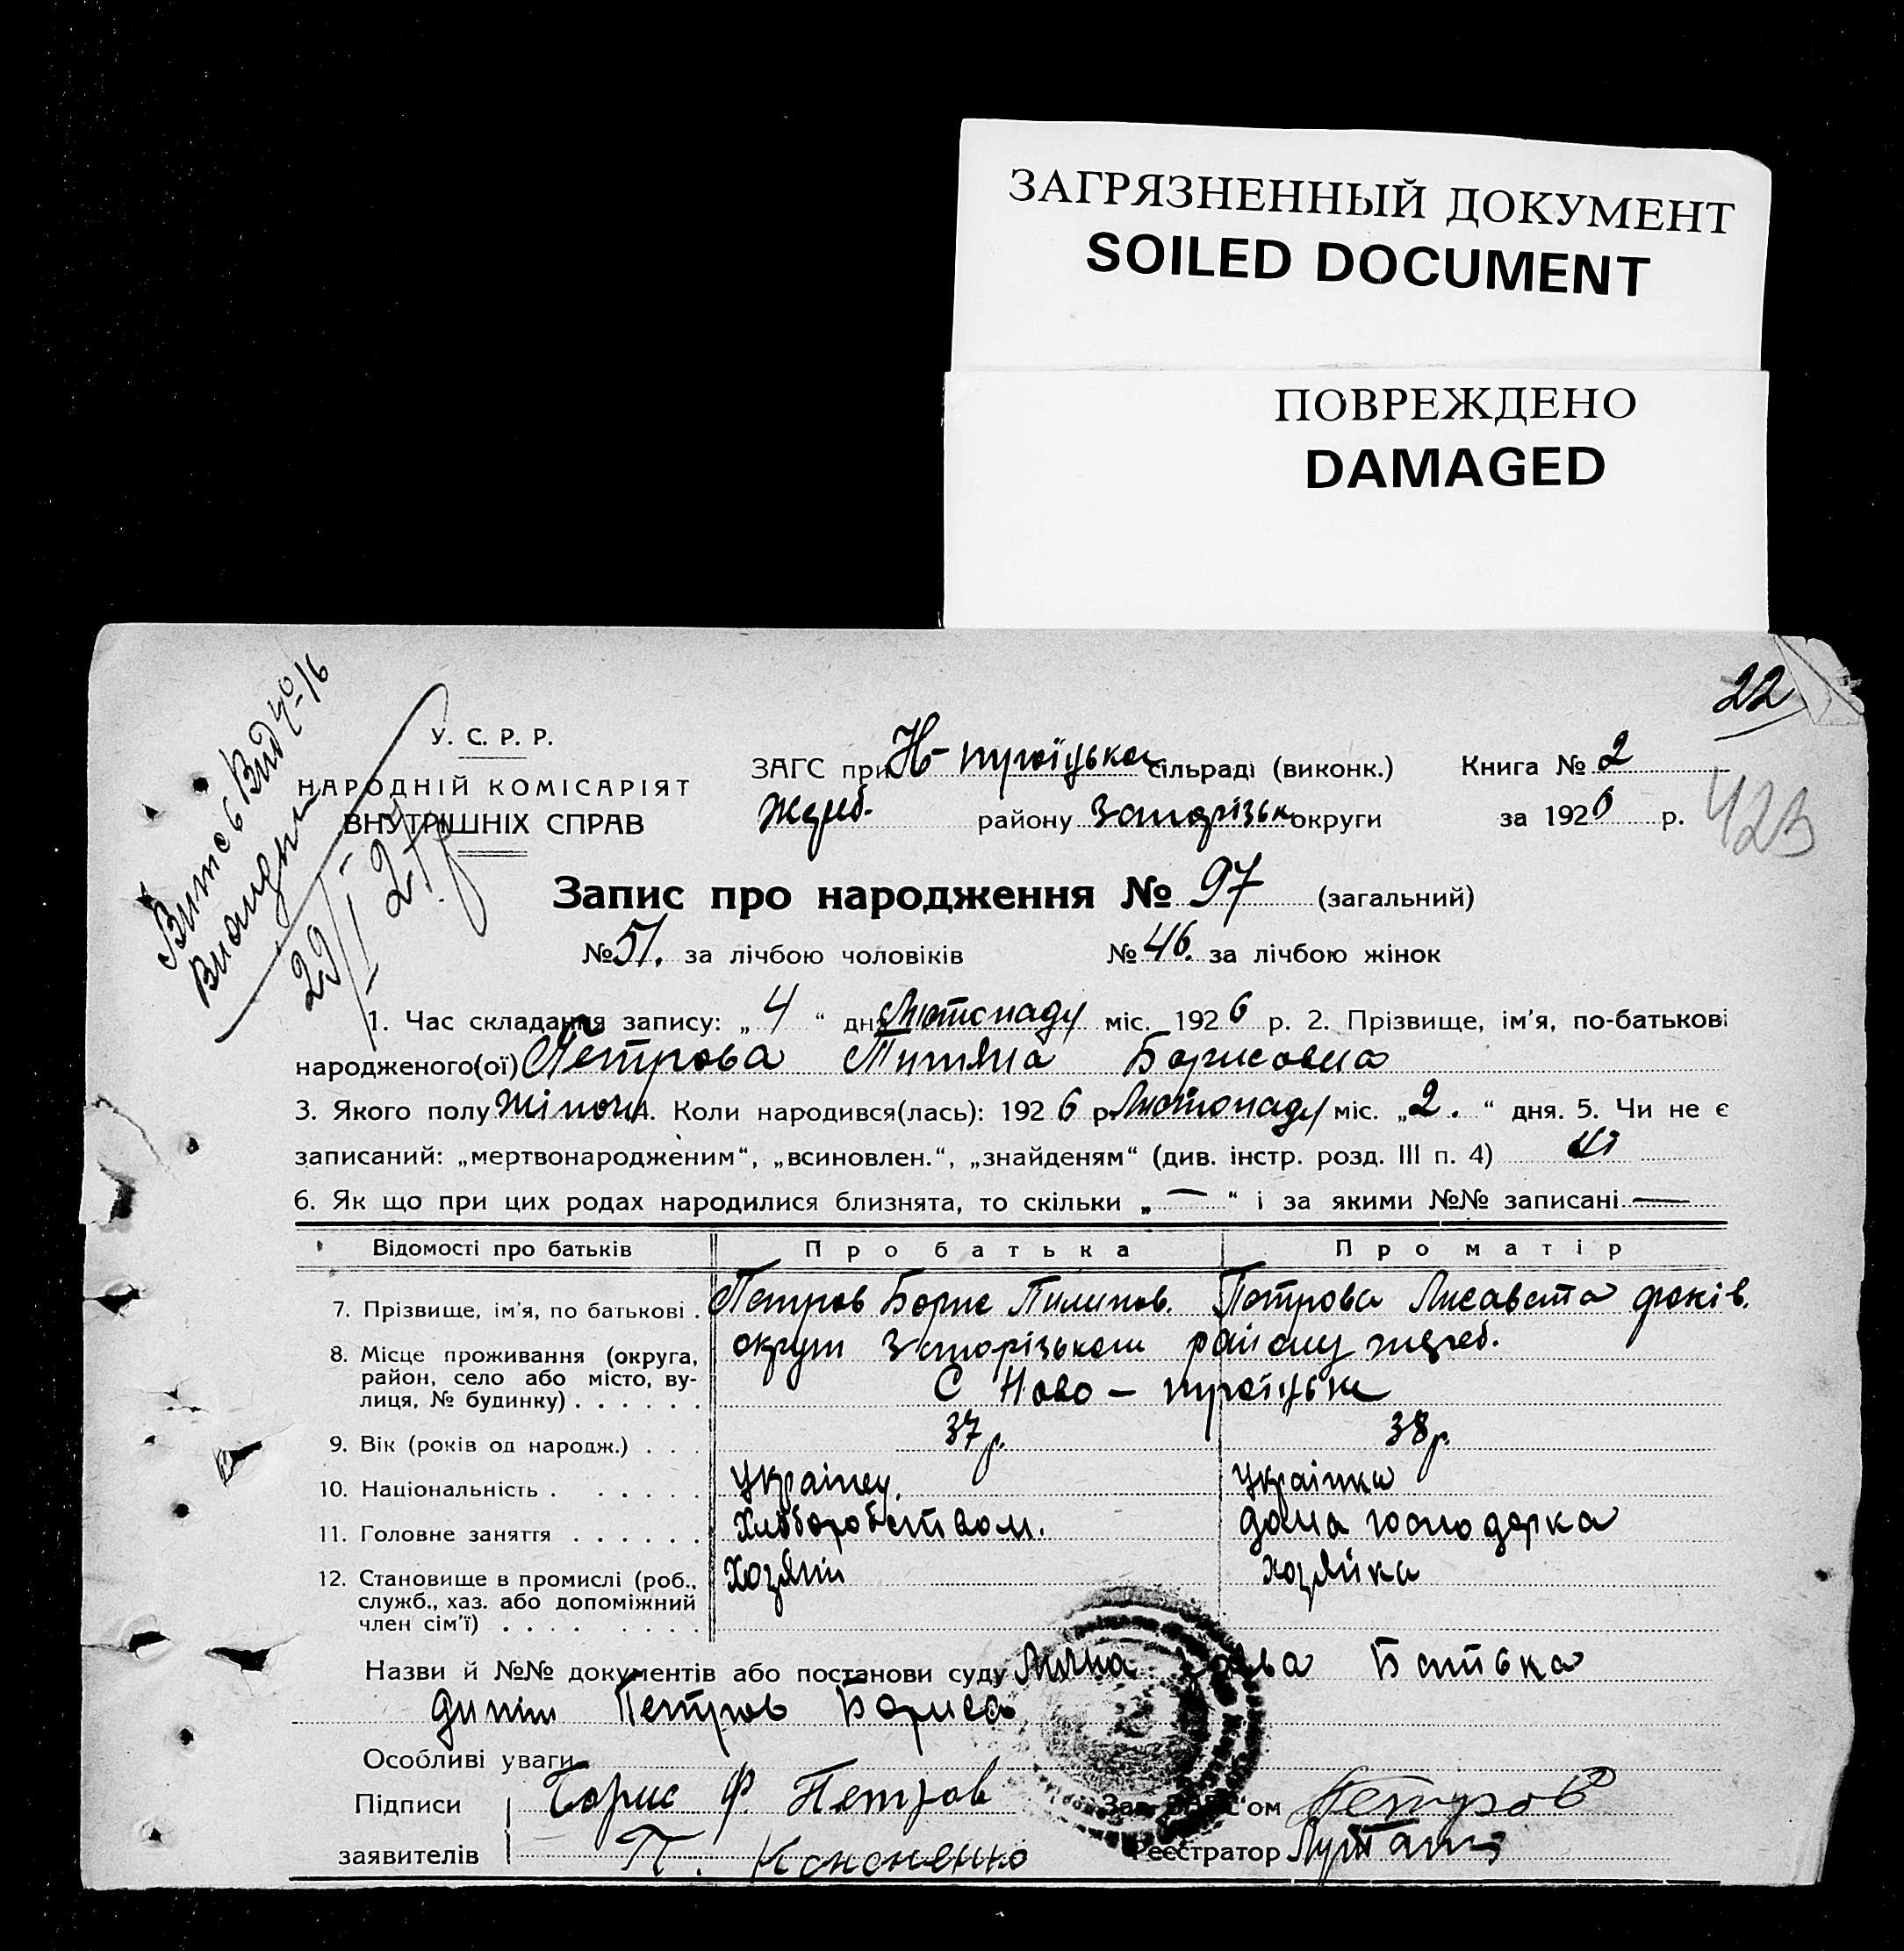 ЗАГРЯЗНЕННЫЙ ДОКУМЕНТ
SOILED DOCUMENT
ПОВРЕЖДЕНО
DAMAGED
22
423
Вид № 16
У. С. Р. Р.
НАРОДНІЙ КОМІСАРІЯТ
ВНУТРІШНІХ СПРАВ
ЗАГС при Н-троїцька сільраді (виконк.) Книга № 2
Жереб. району Запорізьк округи за 1926 р.
Запис про народження № 97 (загальний)
№ 51. за лічбою чоловіків № 46. за лічбою жінок
1. Час складання запису: „ 4 “ дня Листопаду міс. 1926 р. 2. Прізвище, ім'я, по-батькові
народженого(ої) Петрова Борисовна
3. Якого полу жіноч 4. Коли народився(лась): 1926 р. Листопаду міс. „2.“ дня. 5. Чи не є
записаний: „мертвонародженим“, „всиновлен.“, „знайденям“ (див. інстр. розд. III п. 4) ні
6. Як що при цих родах народилися близнята, то скільки „—“ і за якими №№ записані —
Відомості про батьків Про батька Про матір
7. Прізвище, ім'я, по батькові . Петров Борис Пилипов. Петрова Лисавета фоків.
8. Місце проживання (округа, район, село або місто, вулиця, № будинку) . . . . . . округи Запорізькой району жереб.
С Ново-троїцьке
9. Вік (років од народж.) . . . 37 р. 38 р.
10. Національність . . . . . . Українец. Українка
11. Головне заняття . . . . . . Хліборобством. дома господарка
12. Становище в промислі (роб., служб., хаз. або допоміжний член сім'ї) . . . . . . . . Хозяїн хозяйка
Назви й №№ документів або постанови суду заява Батька
Петров Бориса
Особливі уваги
Підписи Борис Ф. Петров Зав. ЗАГС'ом Петров
заявителів П. Кононенко Реєстратор